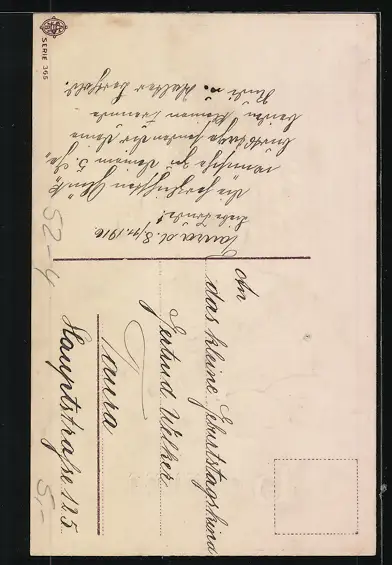 SERIE 365
Taura d. 8/11. 1910.
Liebe Trude!
Die herzlichsten Glück-
wünsche zu Deinem 5. Ge-
burtstage senden Dir Deine
beiden kleinen Freunde
Rudi u. Walter
An
das kleine Geburtstagskind
Gertrud Welker
Taura
Hauptstraße 125.
52-4
5,-